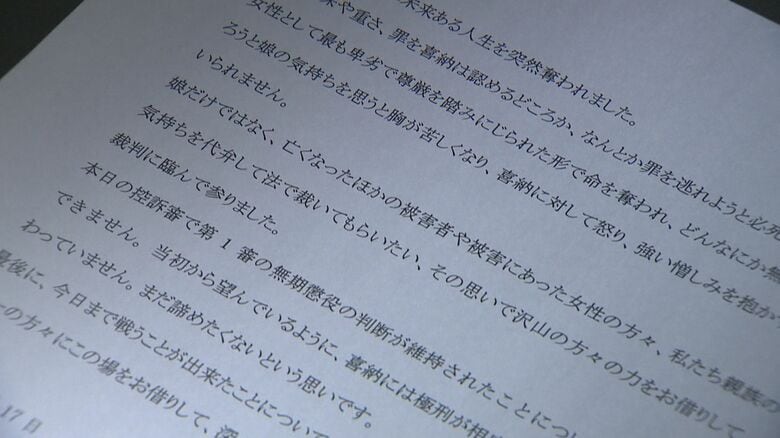 未来ある人生を突然奪われました。
や重さ、罪を喜納は認めるどころか、なんとか罪を逃れようと必死
女性として最も卑劣で尊厳を踏みにじられた形で命を奪われ、どんなにか
ろうと娘の気持ちを思うと胸が苦しくなり、喜納に対して怒り、強い憎しみを抱か
いられません。
娘だけではなく、亡くなったほかの被害者や被害にあった女性の方々、私たち親族の
気持ちを代弁して法で裁いてもらいたい、その思いで沢山の方々の力をお借りして
裁判に臨んで参りました。
本日の控訴審で第1審の無期懲役の判断が維持されたことにつ
できません。当初から望んでいるように、喜納には極刑が相
わっていません。まだ諦めたくないという思いです。
最後に、今日まで戦うことが出来たことについて
の方々にこの場をお借りして、深
17日